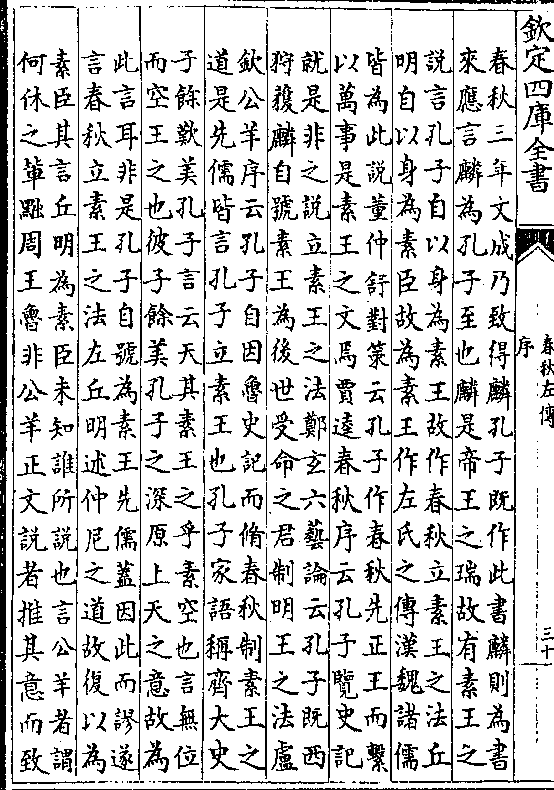 欽定四庫全書
春秋左傳
序
三十
春秋三年文成乃致得麟孔子既作此書麟則為書
來應言麟為孔子至也麟是帝王之瑞故有素王之
說言孔子自以身為素王故作春秋立素王之法丘
明自以身為素臣故為素王作左氏之傳漢魏諸儒
皆為此說董仲舒對策云孔子作春秋先正王而繫
以萬事是素王之文焉賈逵春秋序云孔子覽史記
就是非之說立素王之法鄭玄六藝論云孔子既西
狩獲麟自號素王為後世受命之君制明王之法盧
欽公羊序云孔子自因魯史記而脩春秋制素王之
道是先儒皆言孔子立素王也孔子家語稱齊大史
子餘歎美孔子言云天其素王之乎素空也言無位
而空王之也彼子餘美孔子之深原上天之意故為
此言耳非是孔子自號為素王先儒蓋因此而謬遂
言春秋立素王之法左丘明述仲尼之道故復以為
素臣其言丘明為素臣未知誰所說也言公羊者謂
何休之輩黜周王魯非公羊正文說者推其意而致